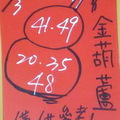 41.49
20.35
48
金葫蘆
僅供參考